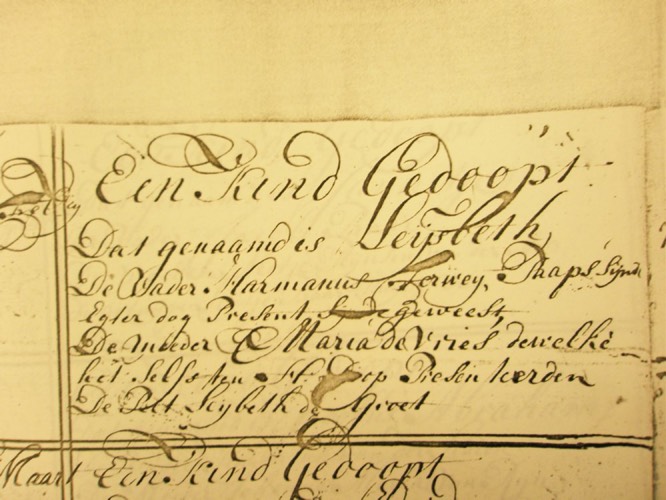 Een Kind Gedoopt
Dat genaamd is Leijsbeth
De Vader Harmanus Herwey, Paaps Sijnde
Egter dog Present geweest
De Moeder Maria de Vries dewelke
het Selfs ten H: Doop Presenteerden
De Peet Leysbeth de Groot
Maart Een Kind Gedoopt